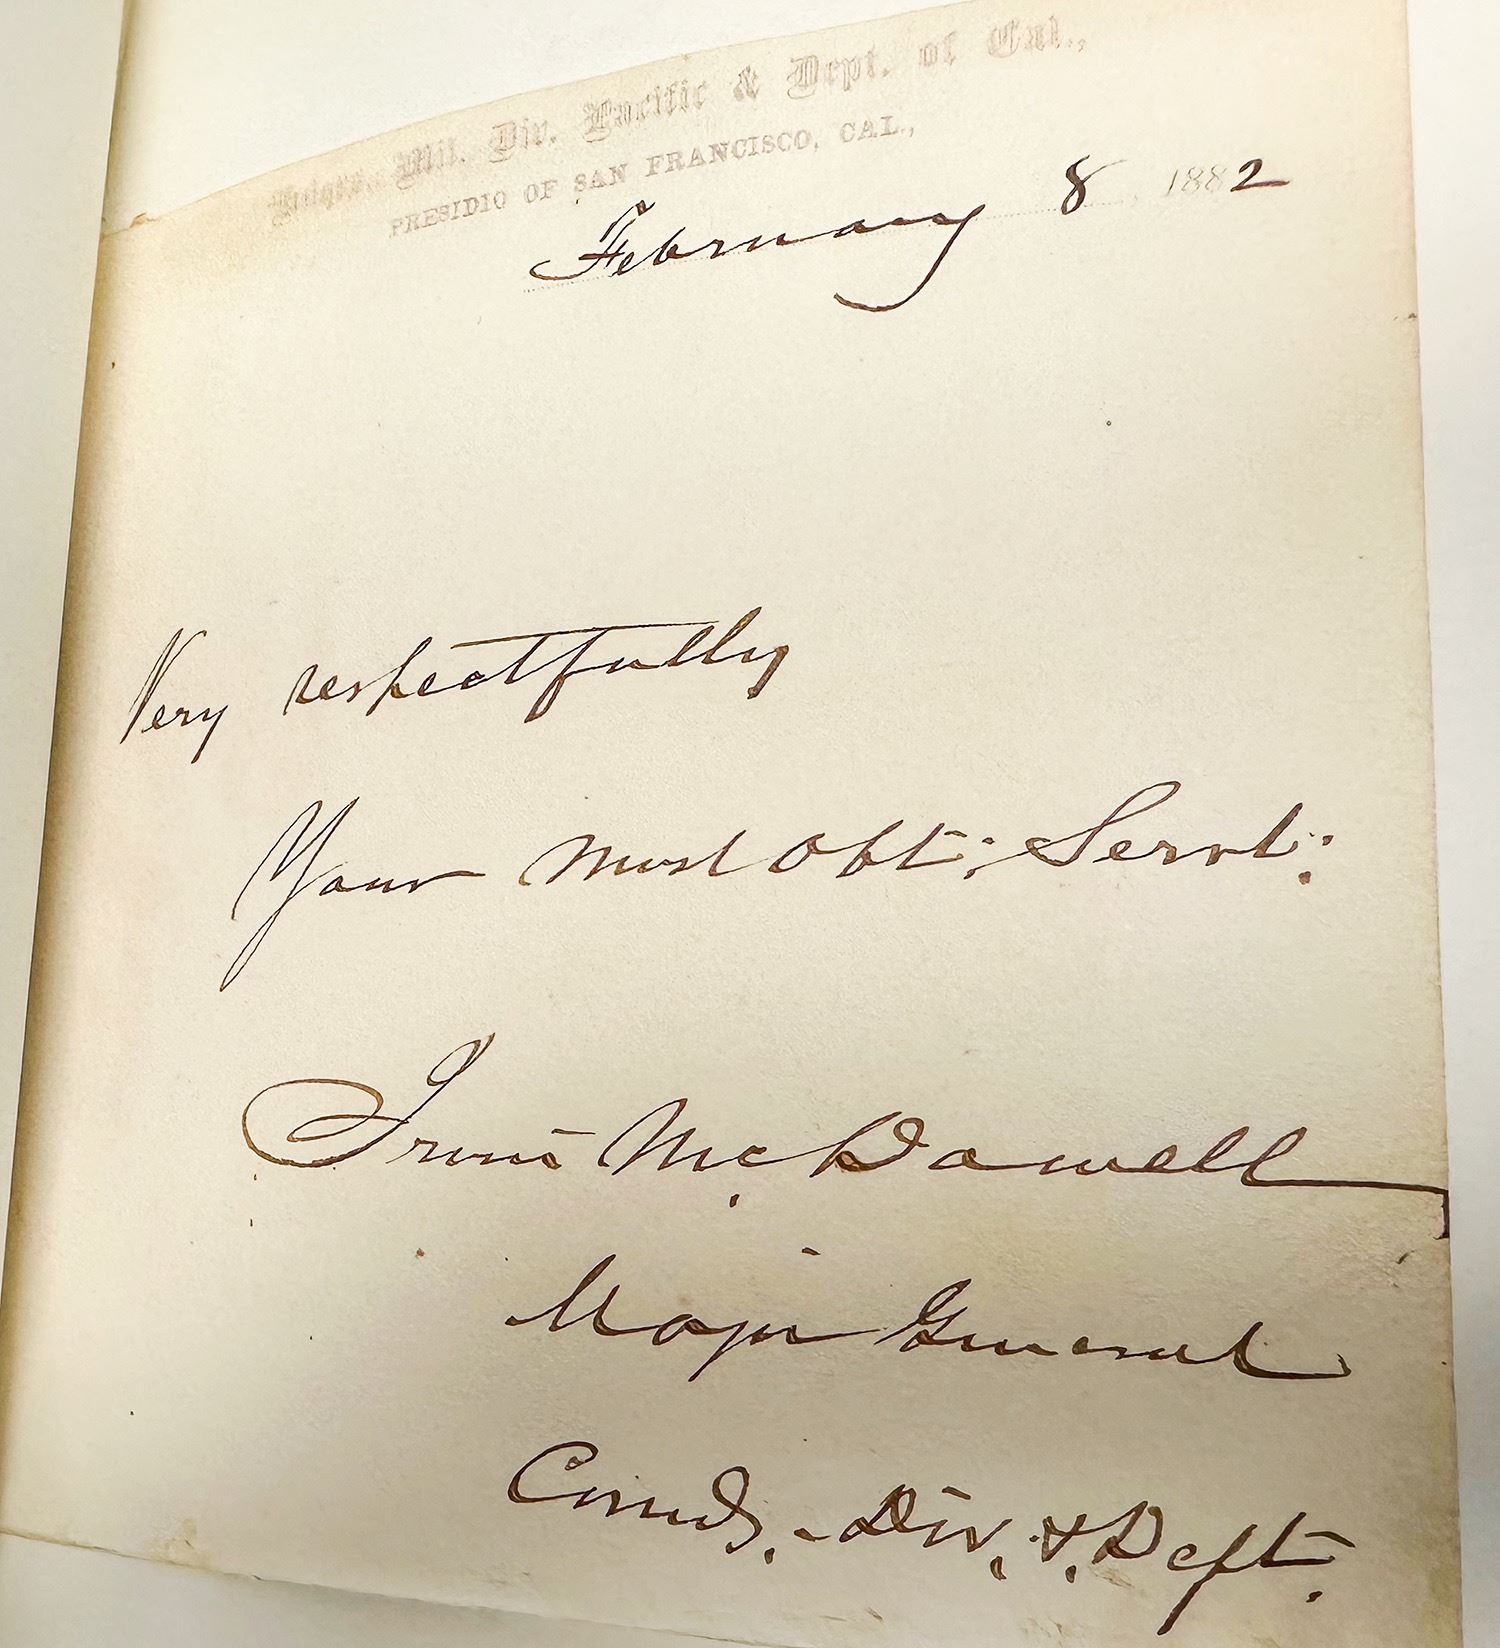 Hdqrs. Mil. Div. Pacific & Dept. of Cal.,
PRESIDIO OF SAN FRANCISCO, CAL.,
February 8, 1882
Very respectfully
Your most Obt: Servt:
Irvin McDowell
Major General
Comdg. Div. & Dept.